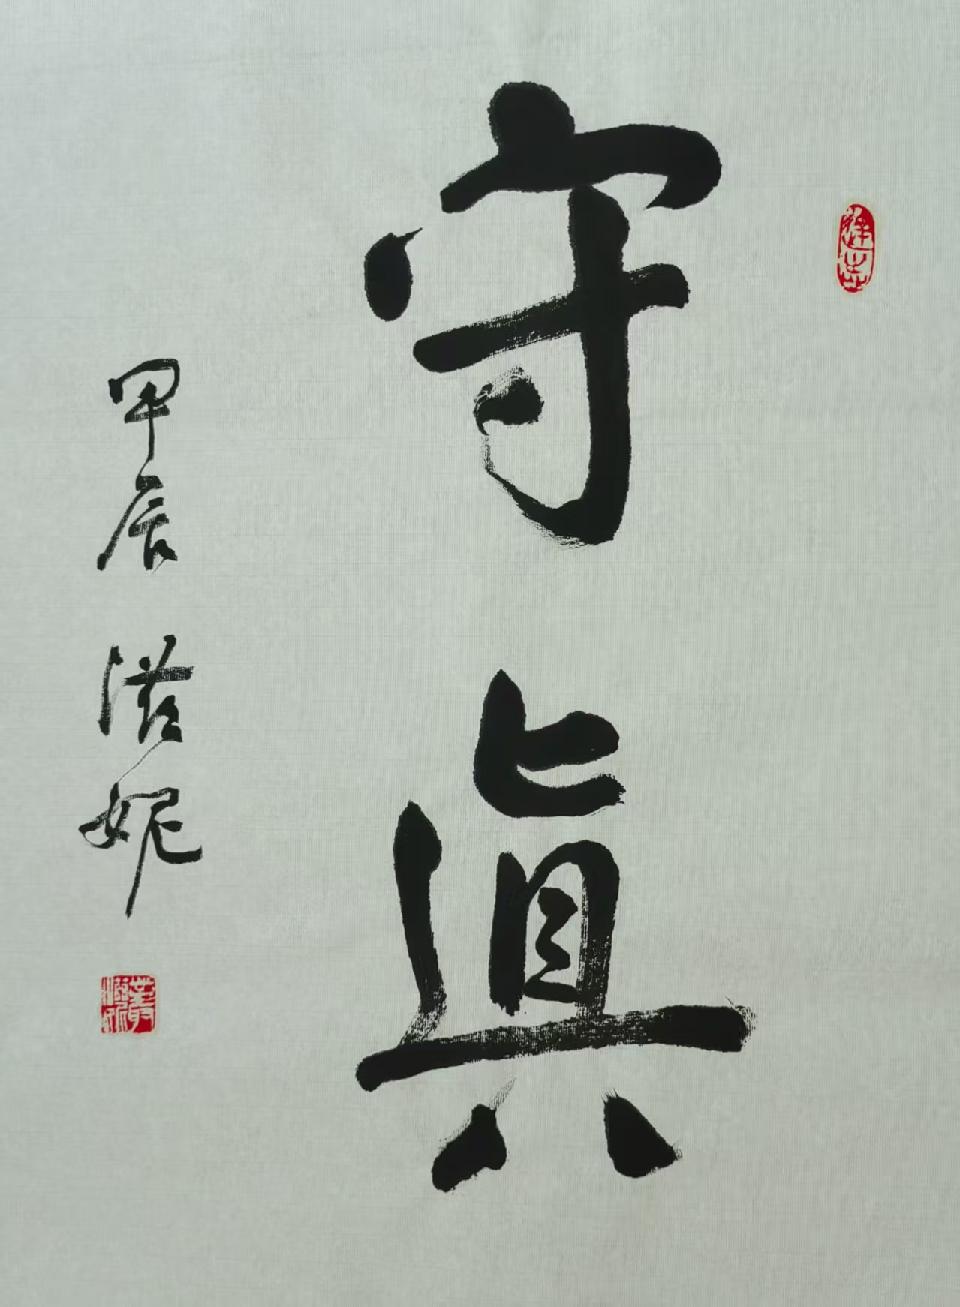 守眞
甲辰 滋妮